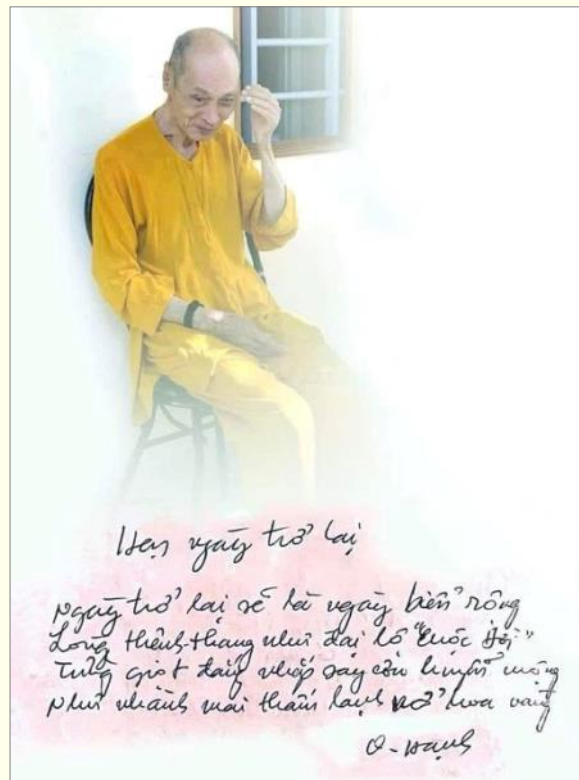 Hẹn ngày trở lại
Ngày trở lại sẽ là ngày biển rộng
Lòng thênh thang như đại lộ "Cuộc Đời"
Từng giọt đắng nhấp say cơn huyễn mộng
Như nhành mai thấm lạnh nở hoa vàng
O-Hạnh